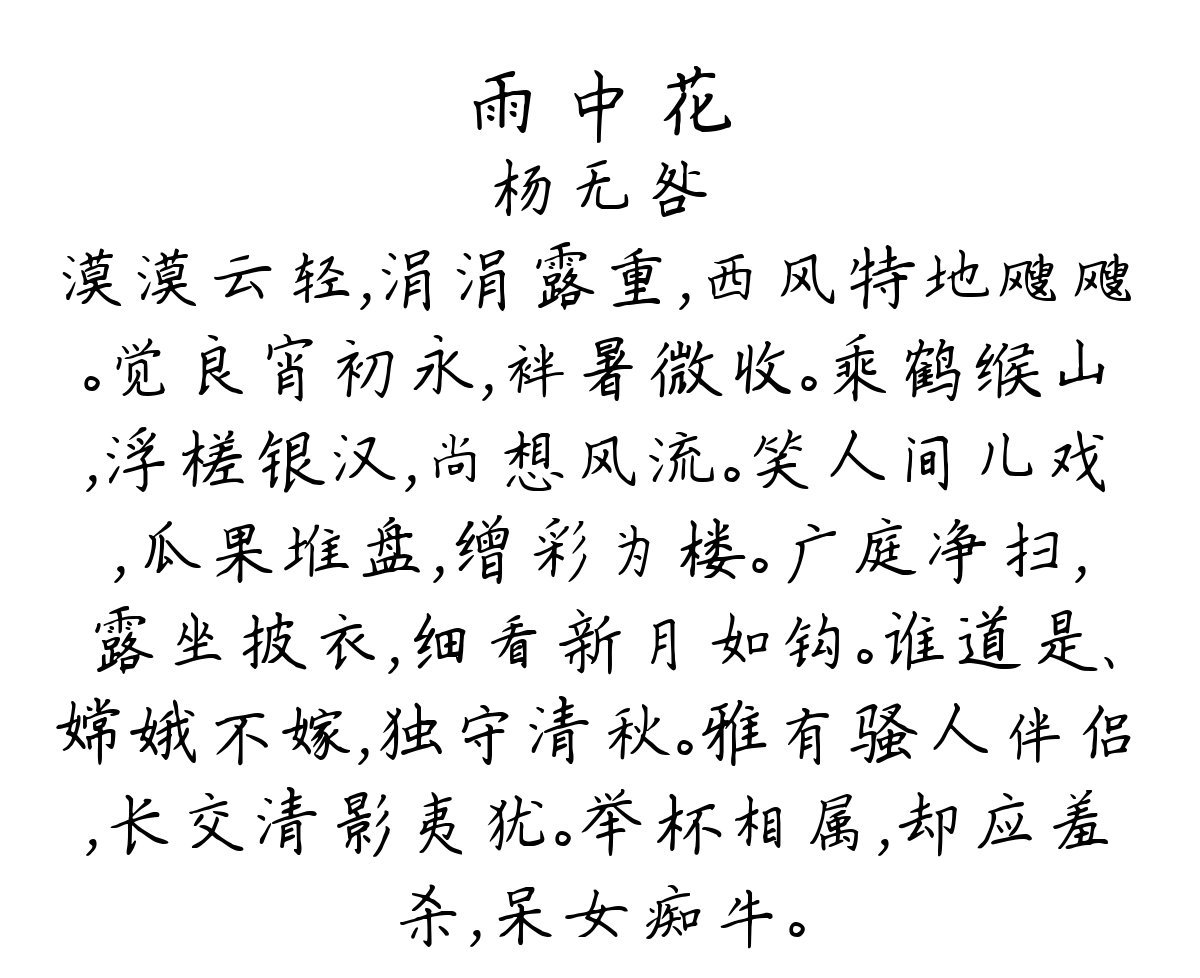 雨中花
杨无咎
漠漠云轻,涓涓露重,西风特地飕飕
。觉良宵初永,袢暑微收。乘鹤缑山
,浮槎银汉,尚想风流。笑人间儿戏
,瓜果堆盘,缯彩为楼。广庭净扫,
露坐披衣,细看新月如钩。谁道是、
嫦娥不嫁,独守清秋。雅有骚人伴侣
,长交清影夷犹。举杯相属,却应羞
杀,呆女痴牛。